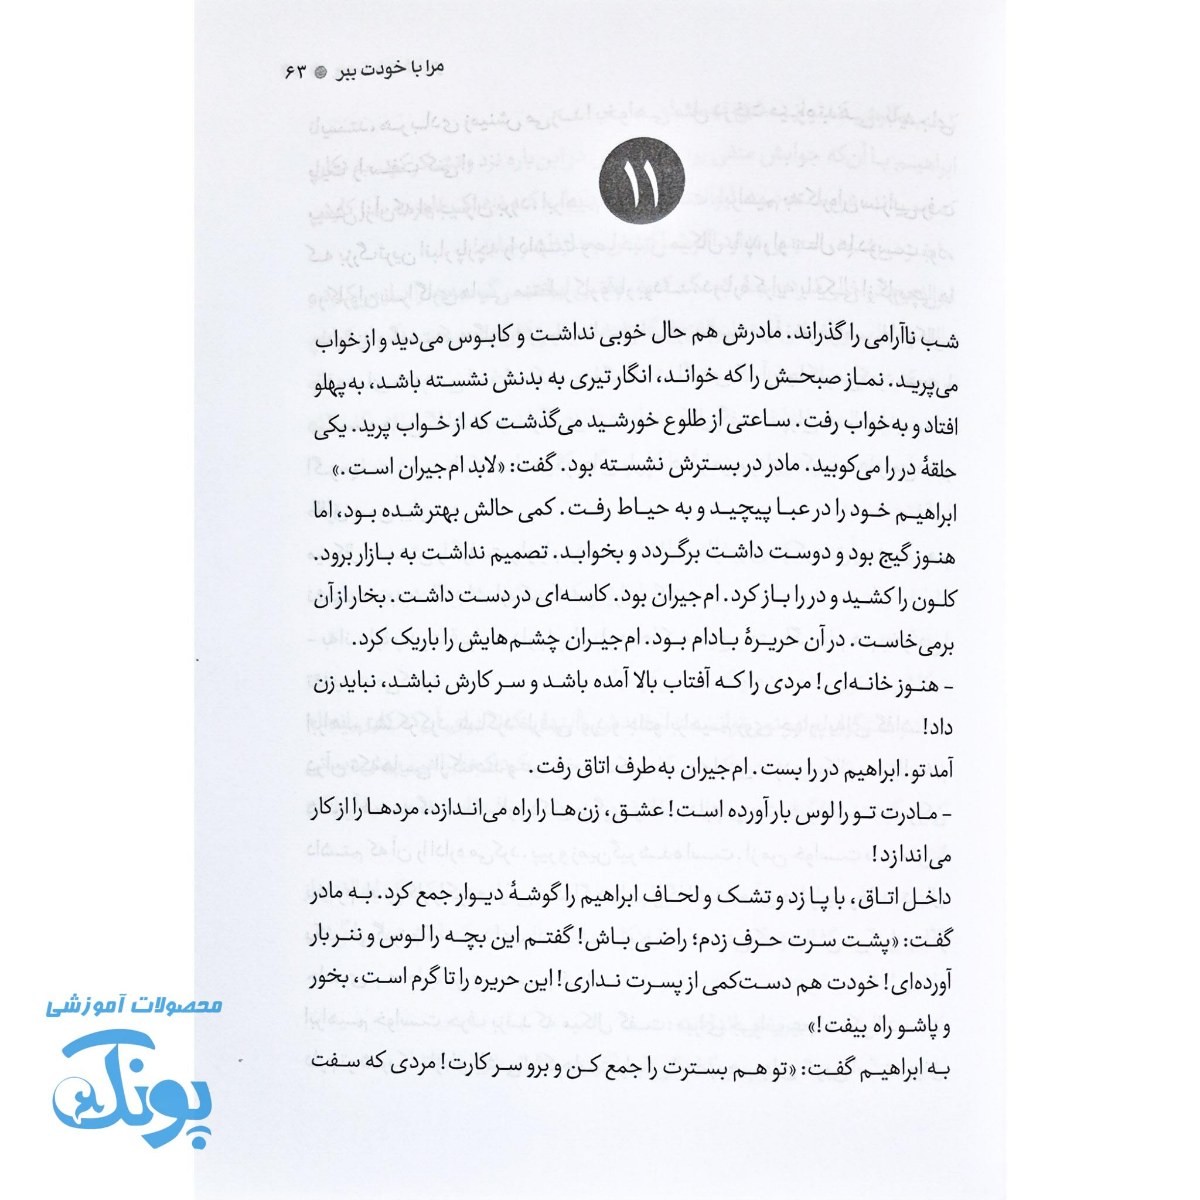 مرا با خودت ببر ● ۶۳
۱۱
شب ناآرامی را گذراند. مادرش هم حال خوبی نداشت و کابوس می‌دید و از خواب
می‌پرید. نماز صبحش را که خواند، انگار تیری به بدنش نشسته باشد، به‌پهلو
افتاد و به‌خواب رفت. ساعتی از طلوع خورشید می‌گذشت که از خواب پرید. یکی
حلقهٔ در را می‌کوبید. مادر در بسترش نشسته بود. گفت: «لابد ام‌جیران است.»
ابراهیم خود را در عبا پیچید و به حیاط رفت. کمی حالش بهتر شده بود، اما
هنوز گیج بود و دوست داشت برگردد و بخوابد. تصمیم نداشت به بازار برود.
کلون را کشید و در را باز کرد. ام‌جیران بود. کاسه‌ای در دست داشت. بخار از آن
برمی‌خاست. در آن حریرهٔ بادام بود. ام‌جیران چشم‌هایش را باریک کرد.
- هنوز خانه‌ای! مردی را که آفتاب بالا آمده باشد و سر کارش نباشد، نباید زن
داد!
آمد تو. ابراهیم در را بست. ام‌جیران به‌طرف اتاق رفت.
- مادرت تو را لوس بار آورده است! عشق، زن‌ها را راه می‌اندازد، مردها را از کار
می‌اندازد!
داخل اتاق، با پا زد و تشک و لحاف ابراهیم را گوشهٔ دیوار جمع کرد. به مادر
گفت: «پشت سرت حرف زدم؛ راضی باش! گفتم این بچه را لوس و ننر بار
آورده‌ای! خودت هم دست‌کمی از پسرت نداری! این حریره را تا گرم است، بخور
و پاشو راه بیفت!»
به ابراهیم گفت: «تو هم بسترت را جمع کن و برو سر کارت! مردی که سفت
محصولات آموزشی
پونک